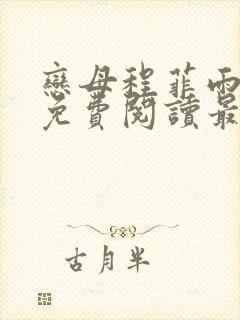 戀母程菲雨
免費閱讀最
古月半